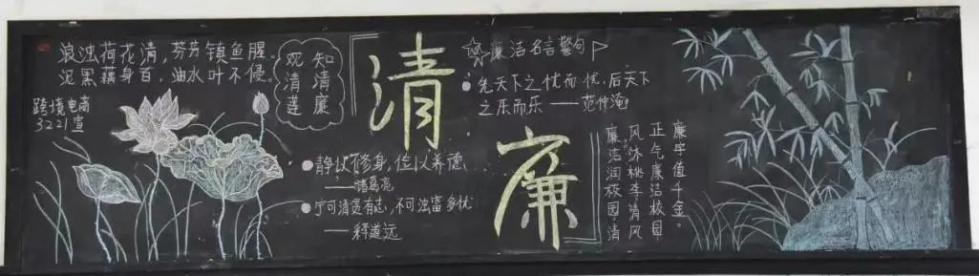 浪浊荷花清,芬芳镇鱼腥
泥黑藕身百,油水叶不侵。
观清莲
知清廉
跨境电商
3221宣
清
廉
廉洁名言警句
先天下之忧而忧,后天下
之乐而乐——范仲淹
静以修身,俭以养德
——诸葛亮
宁可清贫有志,不可浊富多忧
——释道远
廉字值千金。
正气廉洁校园
风沐桃李清风
廉洁润校园清